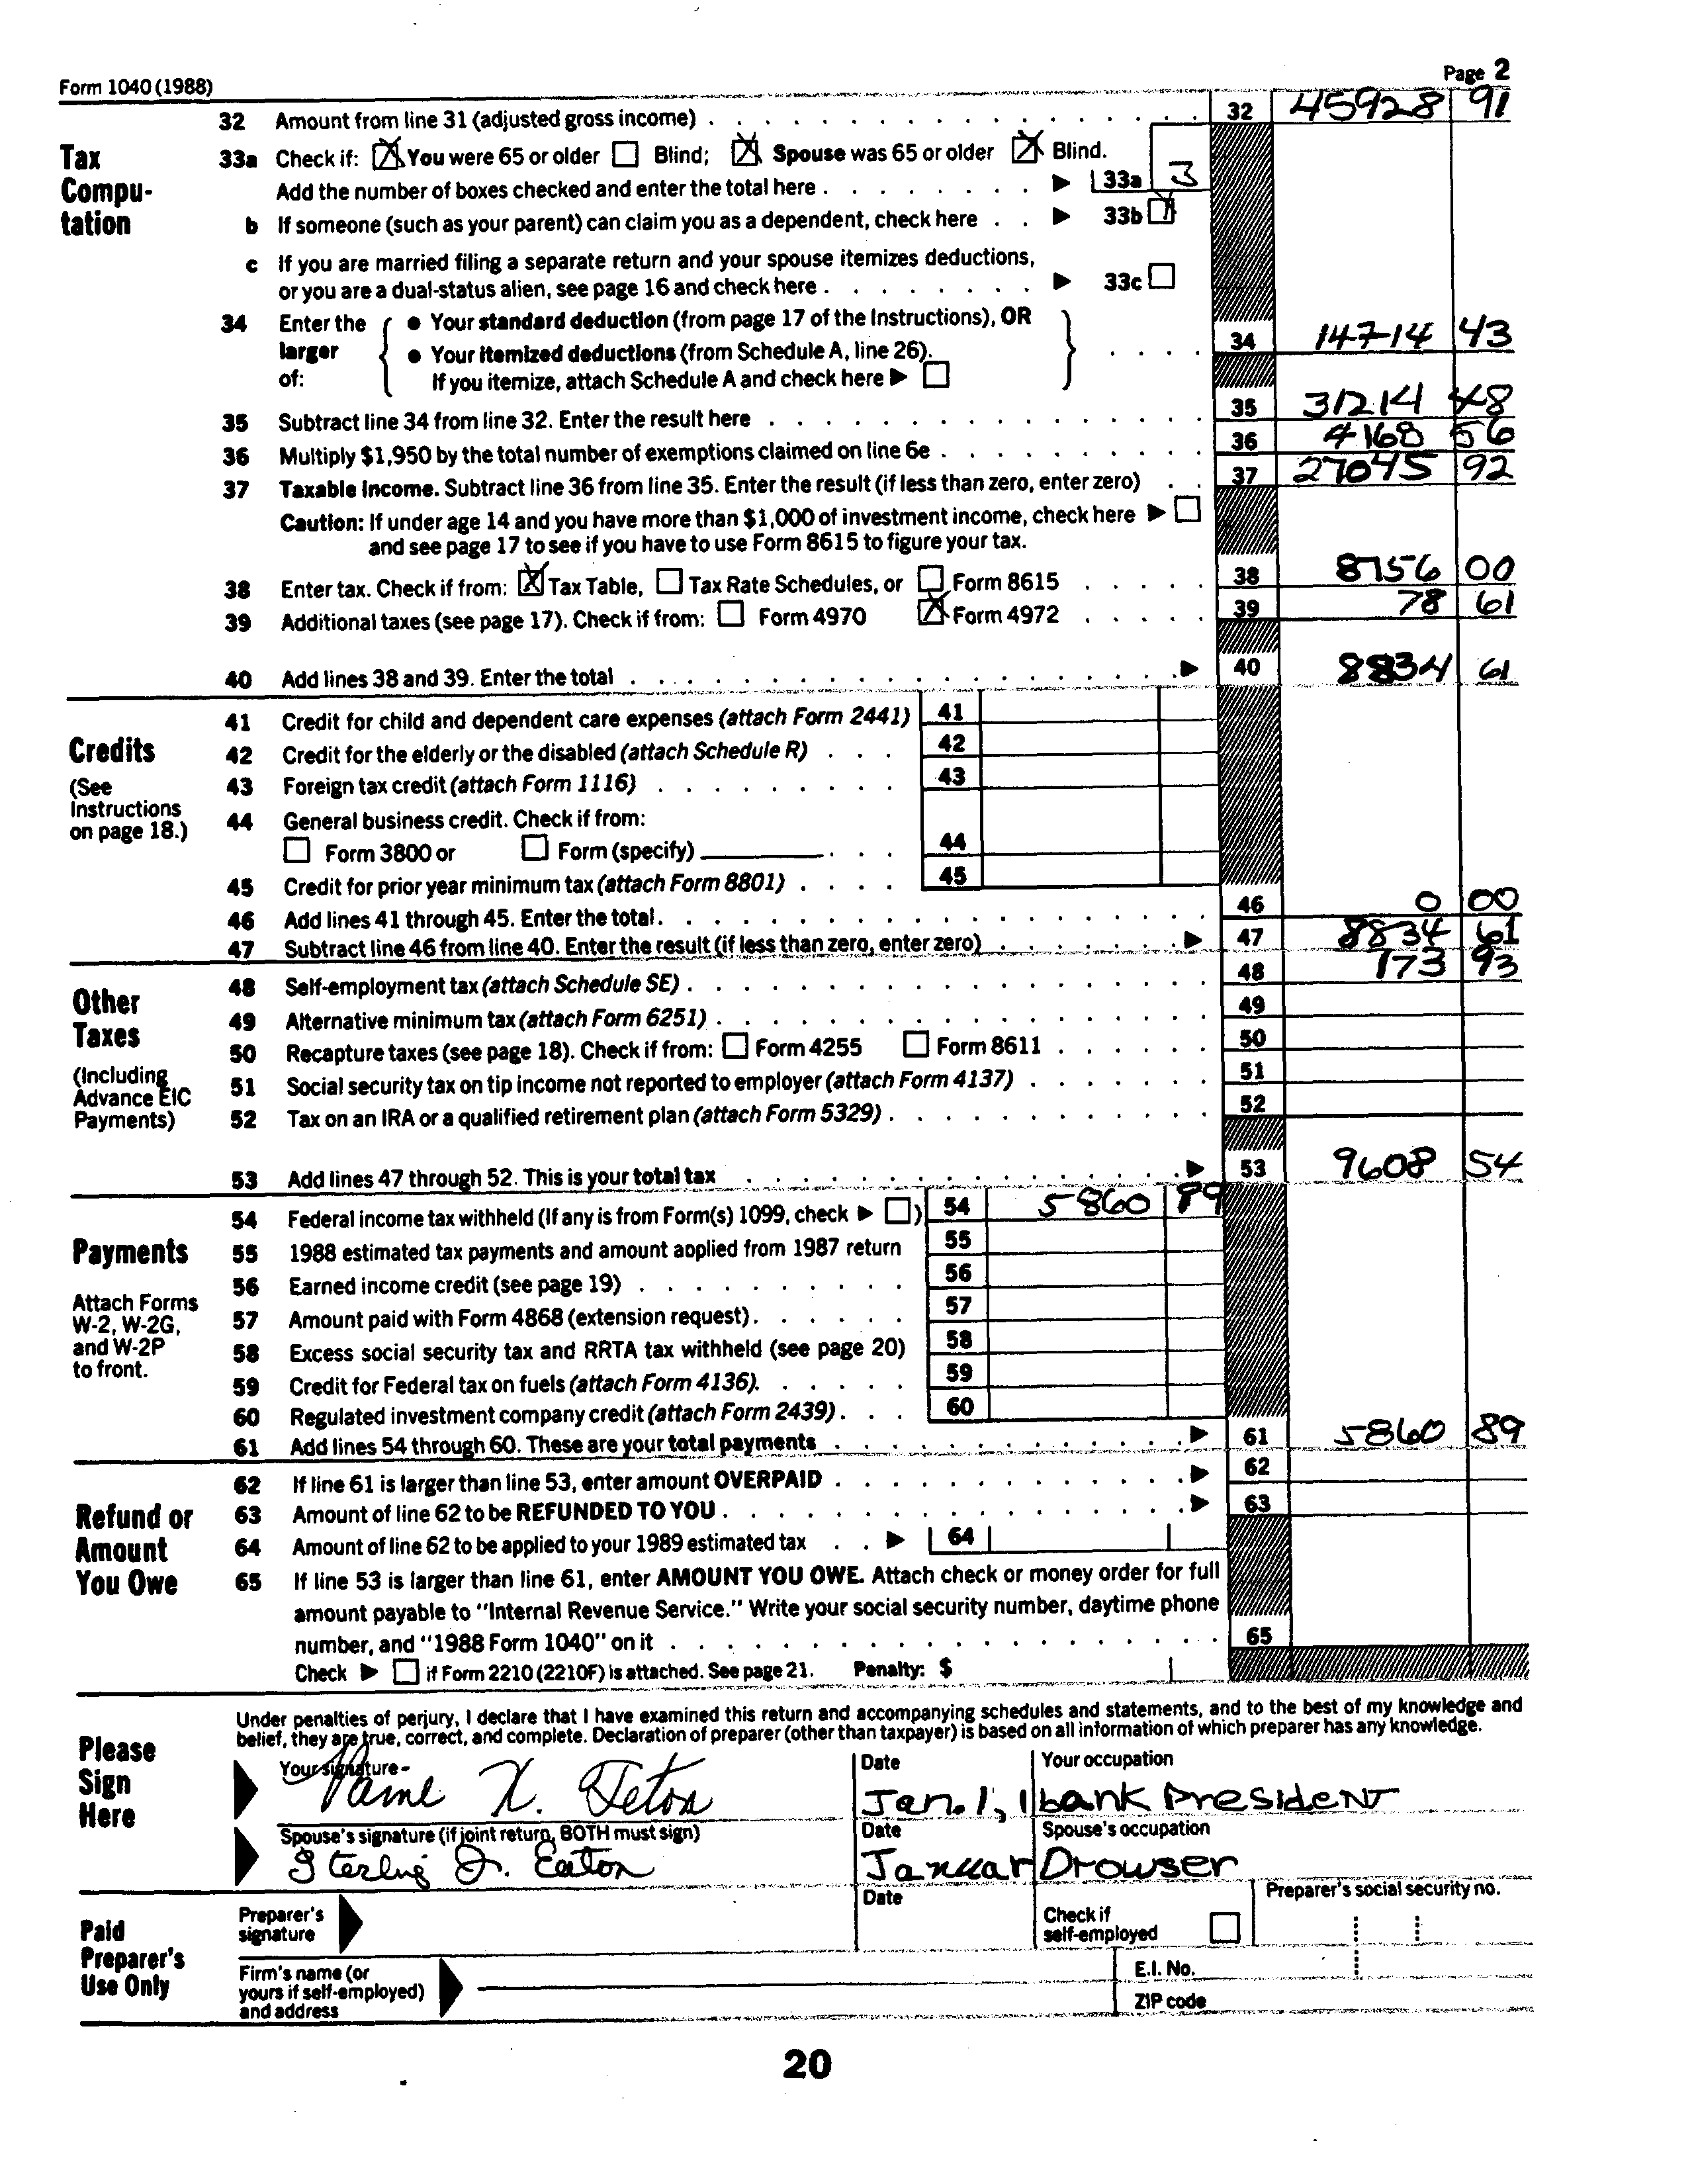 Form 1040 (1988) Page 2
32 Amount from line 31 (adjusted gross income) 32 45928 91
Tax Compu-tation
33a Check if: You were 65 or older Blind; Spouse was 65 or older Blind.
Add the number of boxes checked and enter the total here 33a 3
b If someone (such as your parent) can claim you as a dependent, check here 33b
c If you are married filing a separate return and your spouse itemizes deductions,
or you are a dual-status alien, see page 16 and check here 33c
34 Enter the larger of:
• Your standard deduction (from page 17 of the Instructions), OR
• Your itemized deductions (from Schedule A, line 26). 34 14714 43
If you itemize, attach Schedule A and check here
35 Subtract line 34 from line 32. Enter the result here 35 31214 48
36 Multiply $1,950 by the total number of exemptions claimed on line 6e 36 4168 56
37 Taxable income. Subtract line 36 from line 35. Enter the result (if less than zero, enter zero) 37 27045 92
Caution: If under age 14 and you have more than $1,000 of investment income, check here
and see page 17 to see if you have to use Form 8615 to figure your tax.
38 Enter tax. Check if from: Tax Table, Tax Rate Schedules, or Form 8615 38 8756 00
39 Additional taxes (see page 17). Check if from: Form 4970 Form 4972 39 78 61
40 Add lines 38 and 39. Enter the total 40 8834 61
Credits
(See Instructions on page 18.)
41 Credit for child and dependent care expenses (attach Form 2441) 41
42 Credit for the elderly or the disabled (attach Schedule R) 42
43 Foreign tax credit (attach Form 1116) 43
44 General business credit. Check if from:
Form 3800 or Form (specify) 44
45 Credit for prior year minimum tax (attach Form 8801) 45
46 Add lines 41 through 45. Enter the total. 46 0 00
47 Subtract line 46 from line 40. Enter the result (if less than zero, enter zero) 47 8834 61
Other Taxes
(Including Advance EIC Payments)
48 Self-employment tax (attach Schedule SE) 48 173 93
49 Alternative minimum tax (attach Form 6251) 49
50 Recapture taxes (see page 18). Check if from: Form 4255 Form 8611 50
51 Social security tax on tip income not reported to employer (attach Form 4137) 51
52 Tax on an IRA or a qualified retirement plan (attach Form 5329) 52
53 Add lines 47 through 52. This is your total tax 53 9608 54
Payments
Attach Forms W-2, W-2G, and W-2P to front.
54 Federal income tax withheld (If any is from Form(s) 1099, check ) 54 5860 89
55 1988 estimated tax payments and amount applied from 1987 return 55
56 Earned income credit (see page 19) 56
57 Amount paid with Form 4868 (extension request) 57
58 Excess social security tax and RRTA tax withheld (see page 20) 58
59 Credit for Federal tax on fuels (attach Form 4136). 59
60 Regulated investment company credit (attach Form 2439) 60
61 Add lines 54 through 60. These are your total payments 61 5860 89
Refund or Amount You Owe
62 If line 61 is larger than line 53, enter amount OVERPAID 62
63 Amount of line 62 to be REFUNDED TO YOU 63
64 Amount of line 62 to be applied to your 1989 estimated tax 64
65 If line 53 is larger than line 61, enter AMOUNT YOU OWE. Attach check or money order for full
amount payable to "Internal Revenue Service." Write your social security number, daytime phone
number, and "1988 Form 1040" on it 65
Check if Form 2210 (2210F) is attached. See page 21. Penalty: $
Please Sign Here
Under penalties of perjury, I declare that I have examined this return and accompanying schedules and statements, and to the best of my knowledge and
belief, they are true, correct, and complete. Declaration of preparer (other than taxpayer) is based on all information of which preparer has any knowledge.
Your signature Date Your occupation
X. Teton Jan. 1, 1 bank President
Spouse's signature (if joint return, BOTH must sign) Date Spouse's occupation
Sterling J. Eaton Januar Drowser
Paid Preparer's Use Only
Preparer's signature Date Check if self-employed Preparer's social security no.
Firm's name (or yours if self-employed) and address E.I. No.
ZIP code
20